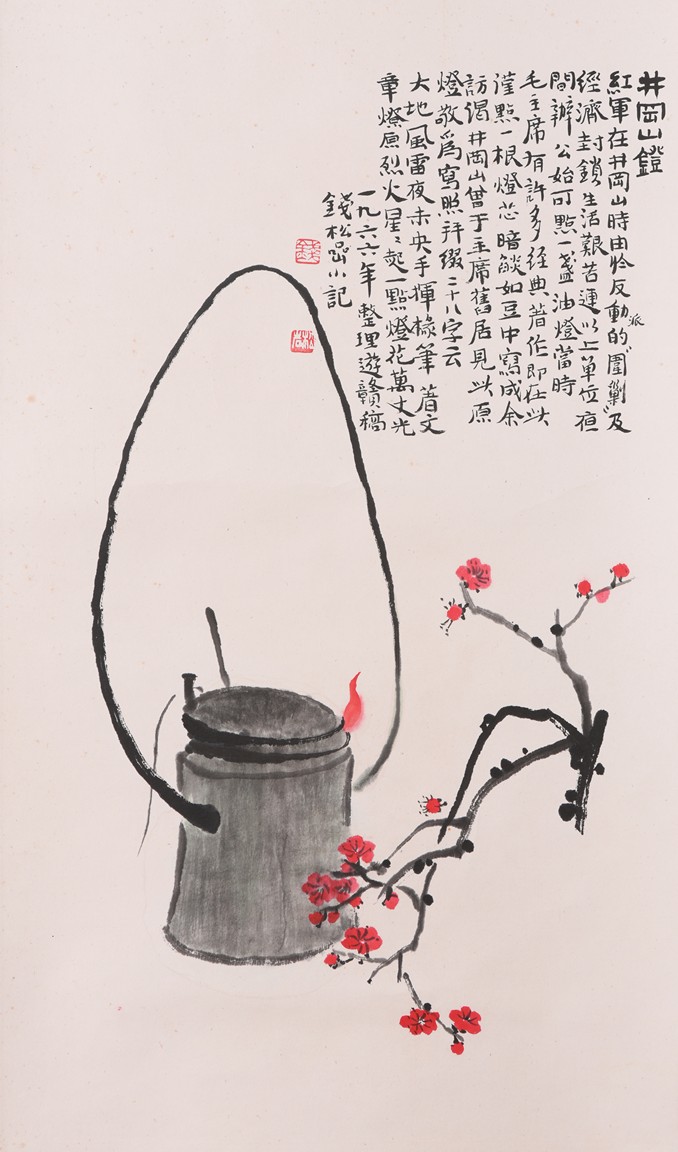 井岡山鐙
紅軍在井岡山時由於反動派的"圍剿"及
經濟封鎖生活艱苦連以上單位夜
間辦公始可點一盞油燈當時
毛主席有許多經典著作即在此
僅點一根燈芯暗燄如豆中寫成余
訪謁井岡山曾于主席舊居見此原
燈敬爲寫照并綴二十八字云
大地風雷夜未央手揮椽筆著文
章燎原烈火星〻起一點燈花萬丈光
一九六六年整理遊贛稿
錢松嵒小記
錢
松嵒